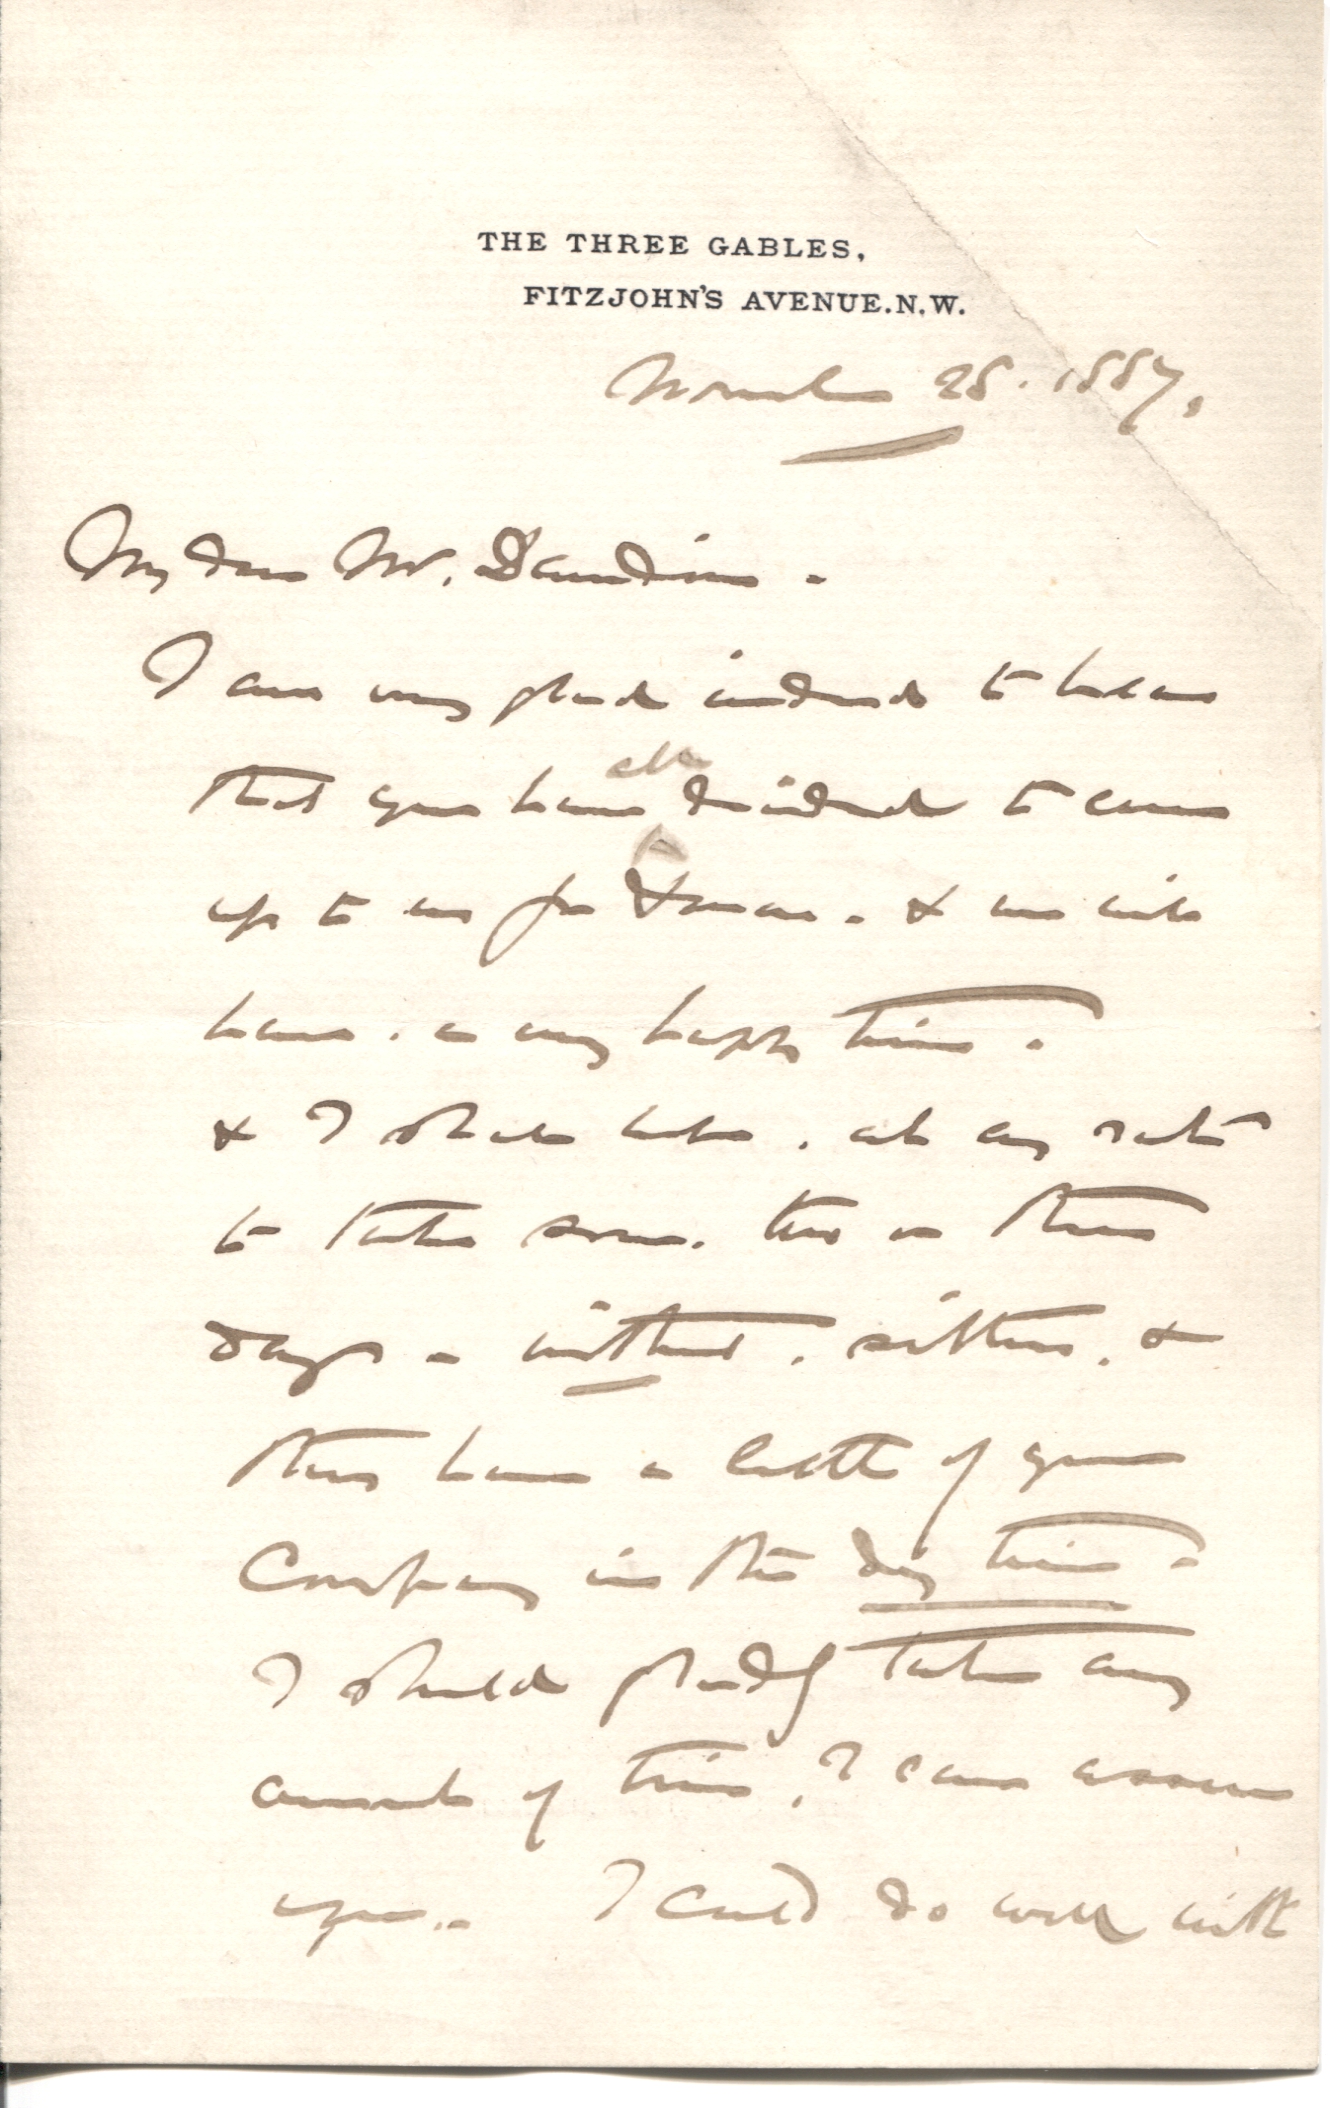 THE THREE GABLES,
FITZJOHN'S AVENUE. N.W.
November 28. 1887.
My dear Mr.
I am very glad indeed to hear
that you have all decided to come
up to us for Xmas. & we will
have. a very happy time.
& I shall take. at any rate
to take some. two or three
days - without. sitters. &
thus have a little of your
Company in the day time.
I should gladly take any
amount of time, I can assure
you.. I could do well with